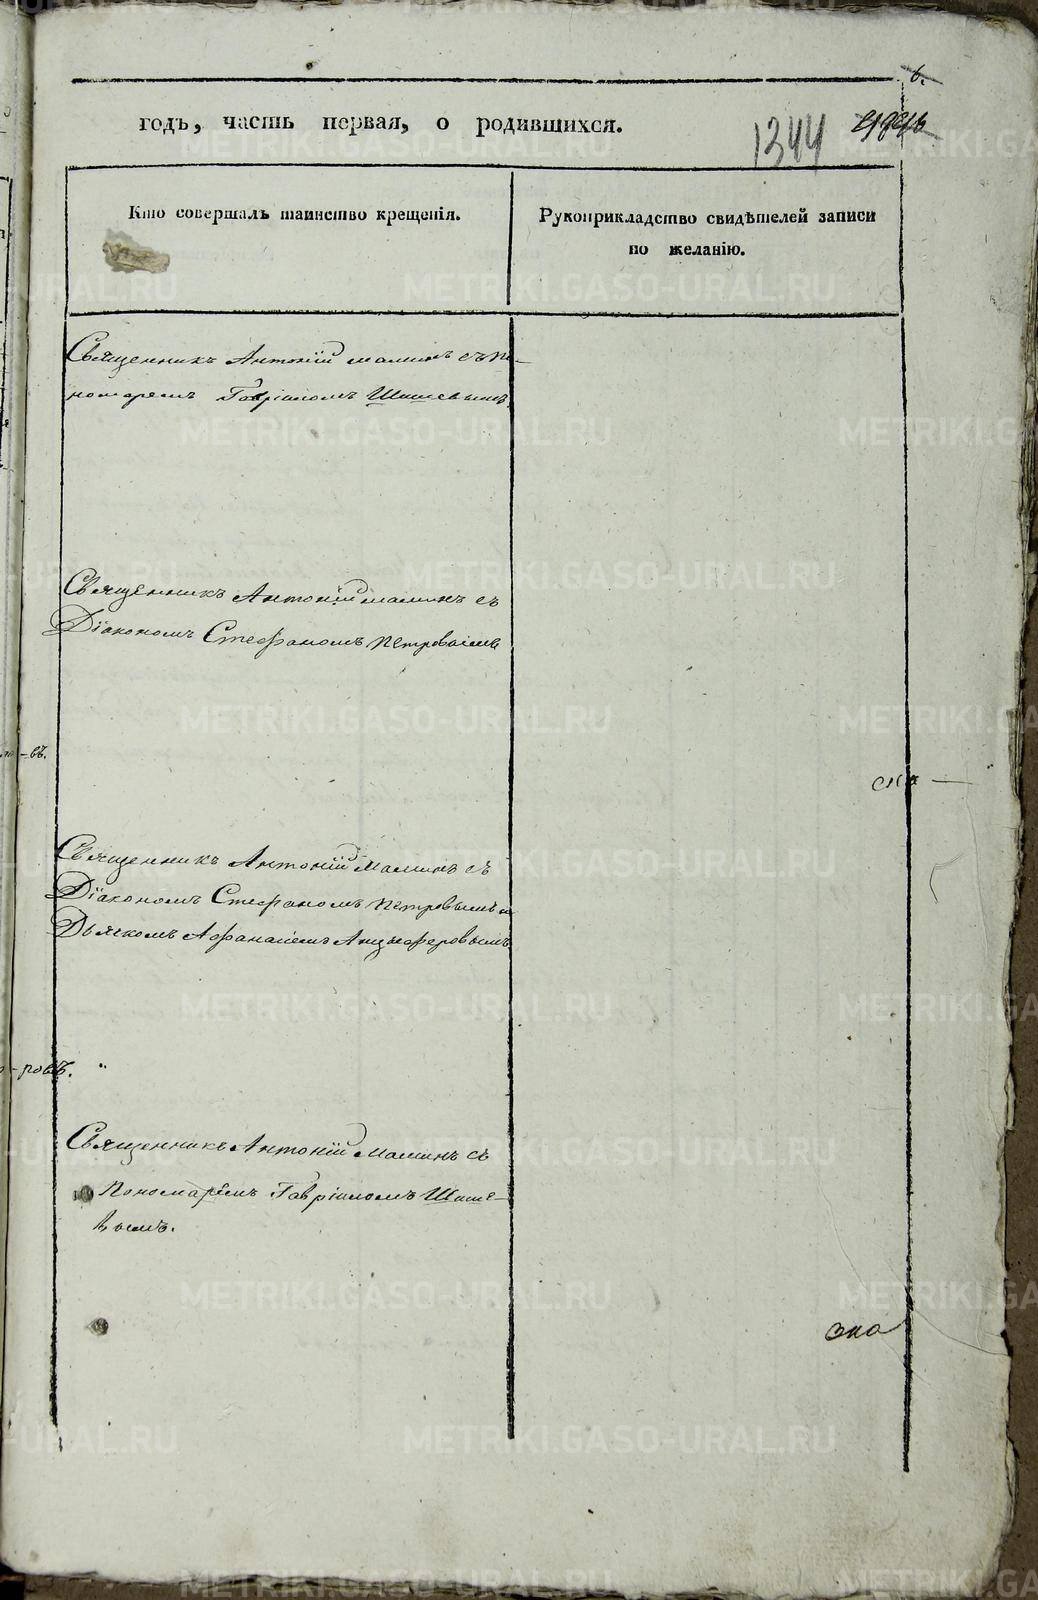 6.
годъ, часть первая, о родившихся.
1344
Кто совершалъ таинство крещенія.
Рукоприкладство свидѣтелей записи
по желанію.
Священникъ Антоній Маминъ съ По-
номаремъ Гавріиломъ Шишевымъ.
Священникъ Антоній Маминъ съ
Діакономъ Стефаномъ Петровымъ
-въ.
Священникъ Антоній Маминъ съ
Діакономъ Стефаномъ Петровымъ и
Дьячкомъ Афанасіемъ Анцыферовымъ
-ровъ.
Священникъ Антоній Маминъ съ
Пономаремъ Гавріиломъ Шише-
вымъ.
METRIKI.GASO-URAL.RU